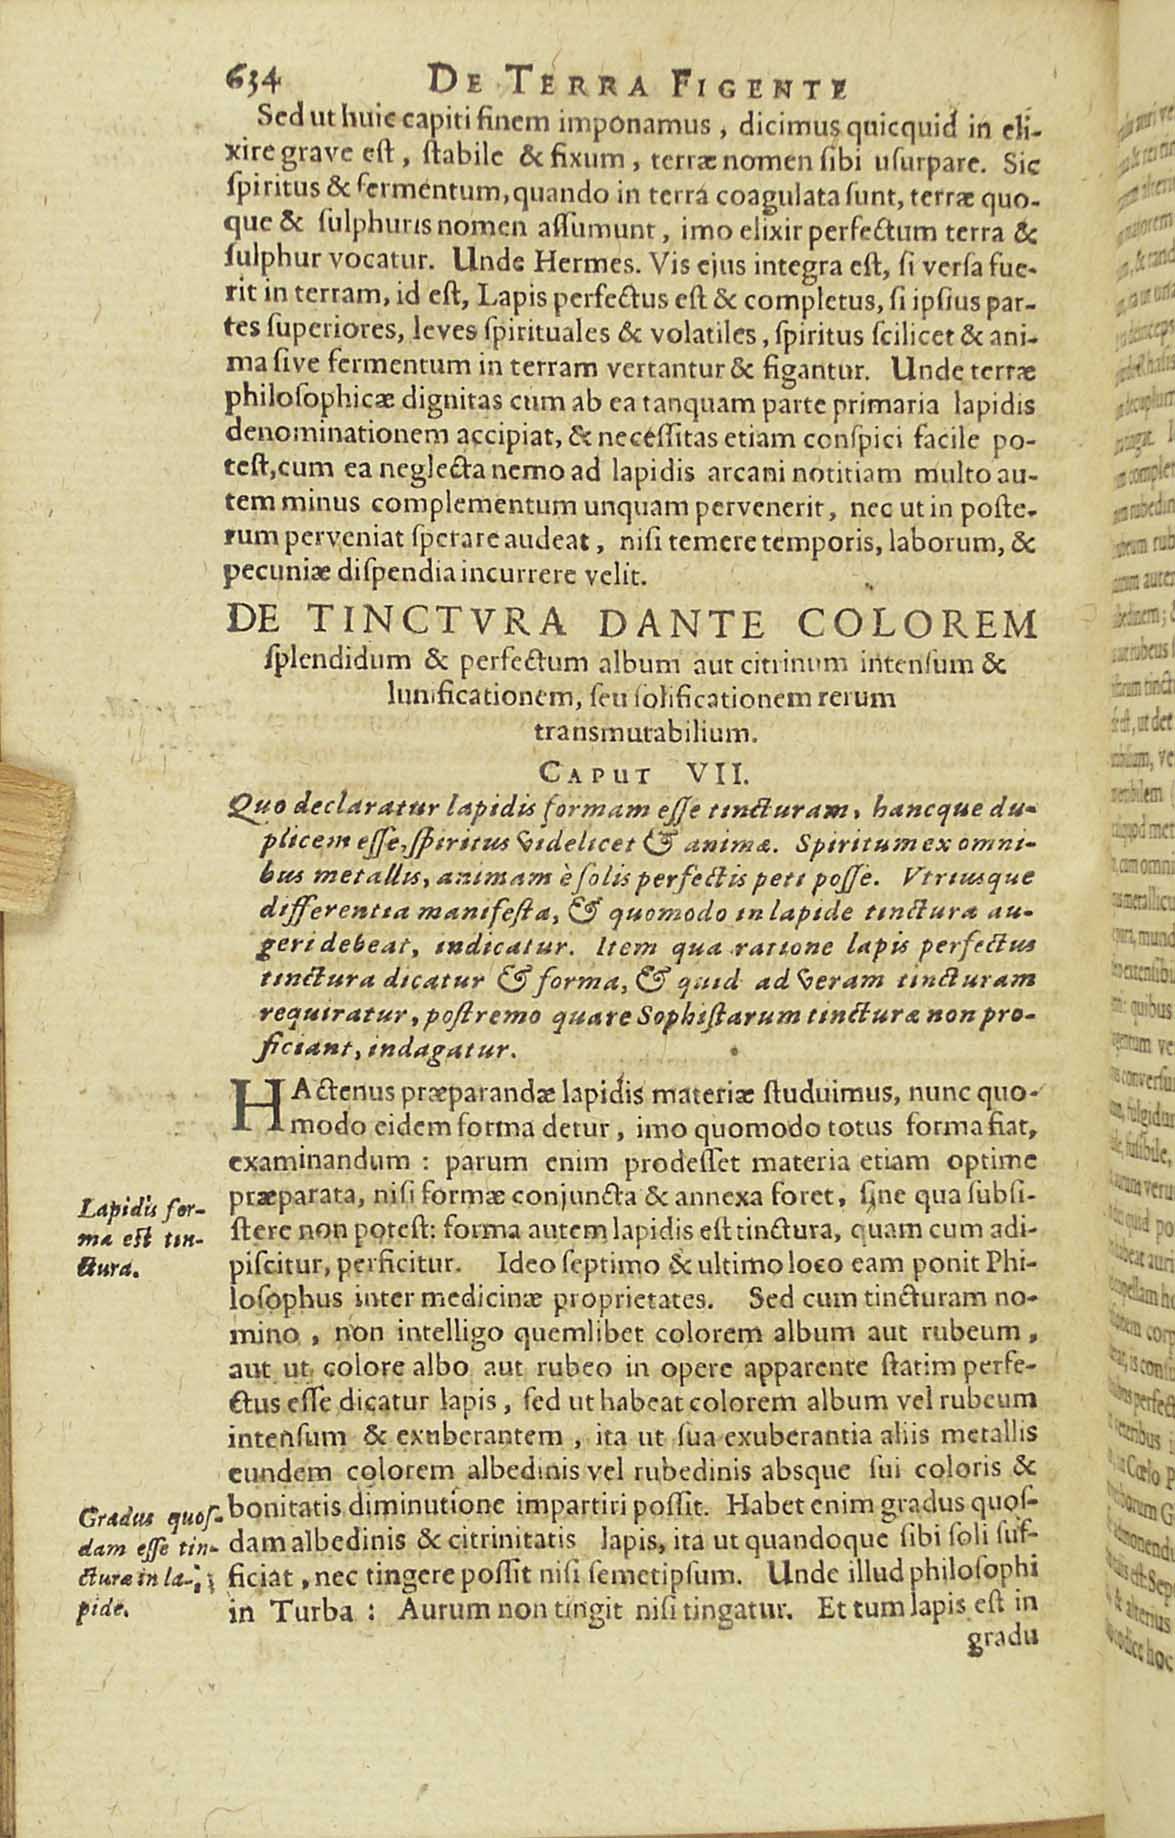 634 DE TERRA FIGENTE
Sed ut huic capiti finem imponamus, dicimus quicquid in eli-
xire grave est, stabile & fixum, terræ nomen sibi usurpare. Sic
spiritus & fermentum, quando in terrá coagulata sunt, terræ quo-
que & sulphuris nomen assumunt, imo elixir perfectum terra &
sulphur vocatur. Unde Hermes. Vis ejus integra est, si versa fue-
rit in terram, id est, Lapis perfectus est & completus, si ipsius par-
tes superiores, leves spirituales & volatiles, spiritus scilicet & ani-
ma sive fermentum in terram vertantur & figantur. Unde terræ
philosophicæ dignitas cum ab ea tanquam parte primaria lapidis
denominationem accipiat, & necessitas etiam conspici facile po-
test, cum ea neglecta nemo ad lapidis arcani notitiam multo au-
tem minus complementum unquam pervenerit, nec ut in poste-
rum perveniat sperare audeat, nisi temere temporis, laborum, &
pecuniæ dispendia incurrere velit.
DE TINCTVRA DANTE COLOREM
splendidum & perfectum album aut citrinum intensum &
lunificationem, seu solificationem rerum
transmutabilium.
CAPUT VII.
Quo declaratur lapidis formam esse tincturam, hancque du-
plicem esse, spiritus videlicet & animæ. Spiritum ex omni-
bus metallis, animam è solis perfectis peti posse. Vtriusque
differentia manifesta, & quomodo in lapide tinctura au-
geri debeat, indicatur. Item qua ratione lapis perfectus
tinctura dicatur & forma, & quid ad veram tincturam
requiratur, postremo quare Sophistarum tincturæ non pro-
ficiant, indagatur.
HActenus præparandæ lapidis materiæ studuimus, nunc quo-
modo eidem forma detur, imo quomodo totus forma fiat,
examinandum : parum enim prodesset materia etiam optime
præparata, nisi formæ conjuncta & annexa foret, sine qua subsi-
stere non potest: forma autem lapidis est tinctura, quam cum adi-
piscitur, perficitur. Ideo septimo & ultimo loco eam ponit Phi-
losophus inter medicinæ proprietates. Sed cum tincturam no-
mino, non intelligo quemlibet colorem album aut rubeum,
aut ut colore albo aut rubeo in opere apparente statim perfe-
ctus esse dicatur lapis, sed ut habeat colorem album vel rubeum
intensum & exuberantem, ita ut sua exuberantia aliis metallis
eundem colorem albedinis vel rubedinis absque sui coloris &
bonitatis diminutione impartiri possit. Habet enim gradus quos-
dam albedinis & citrinitatis lapis, ita ut quandoque sibi soli suf-
ficiat, nec tingere possit nisi semetipsum. Unde illud philosophi
in Turba : Aurum non tingit nisi tingatur. Et tum lapis est in
gradu
Lapidis for-
ma est tin-
ctura.
Gradus quos-
dam esse tin-
cturæ in la-
pide.